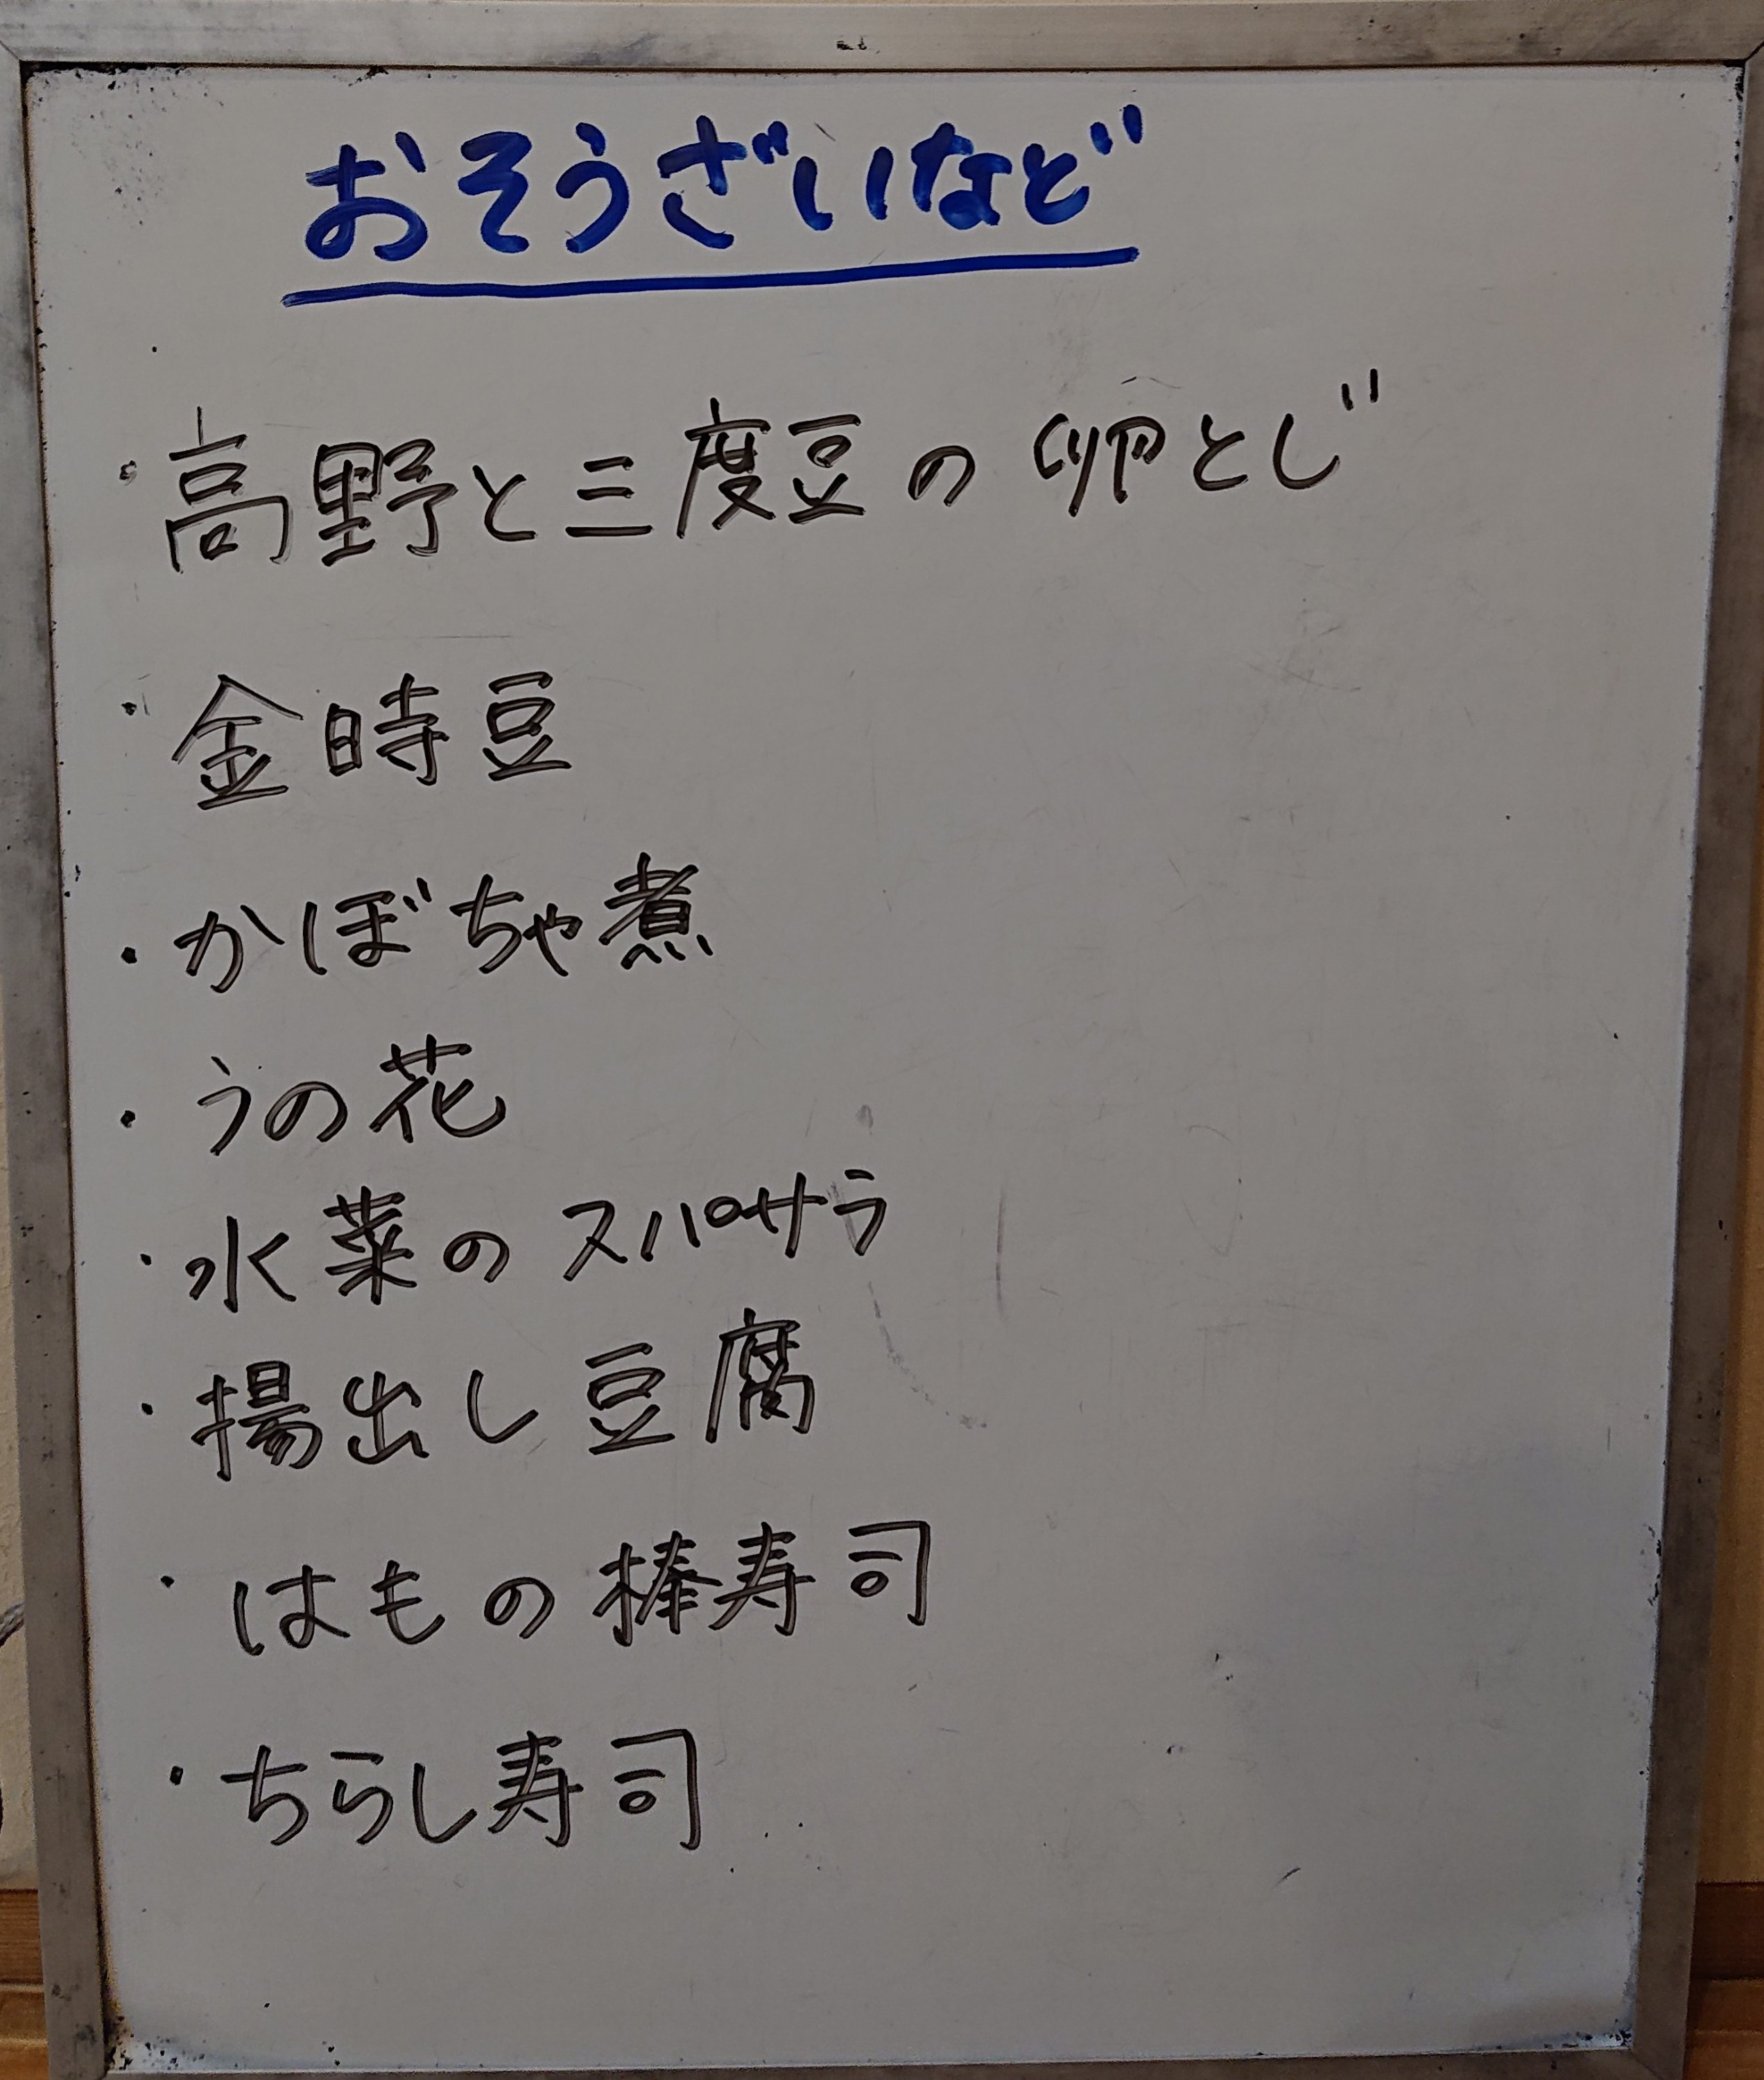 おそうざいなど
・高野と三度豆の卵とじ
・金時豆
・かぼちゃ煮
・うの花
・水菜のスパサラ
・揚出し豆腐
・はもの棒寿司
・ちらし寿司